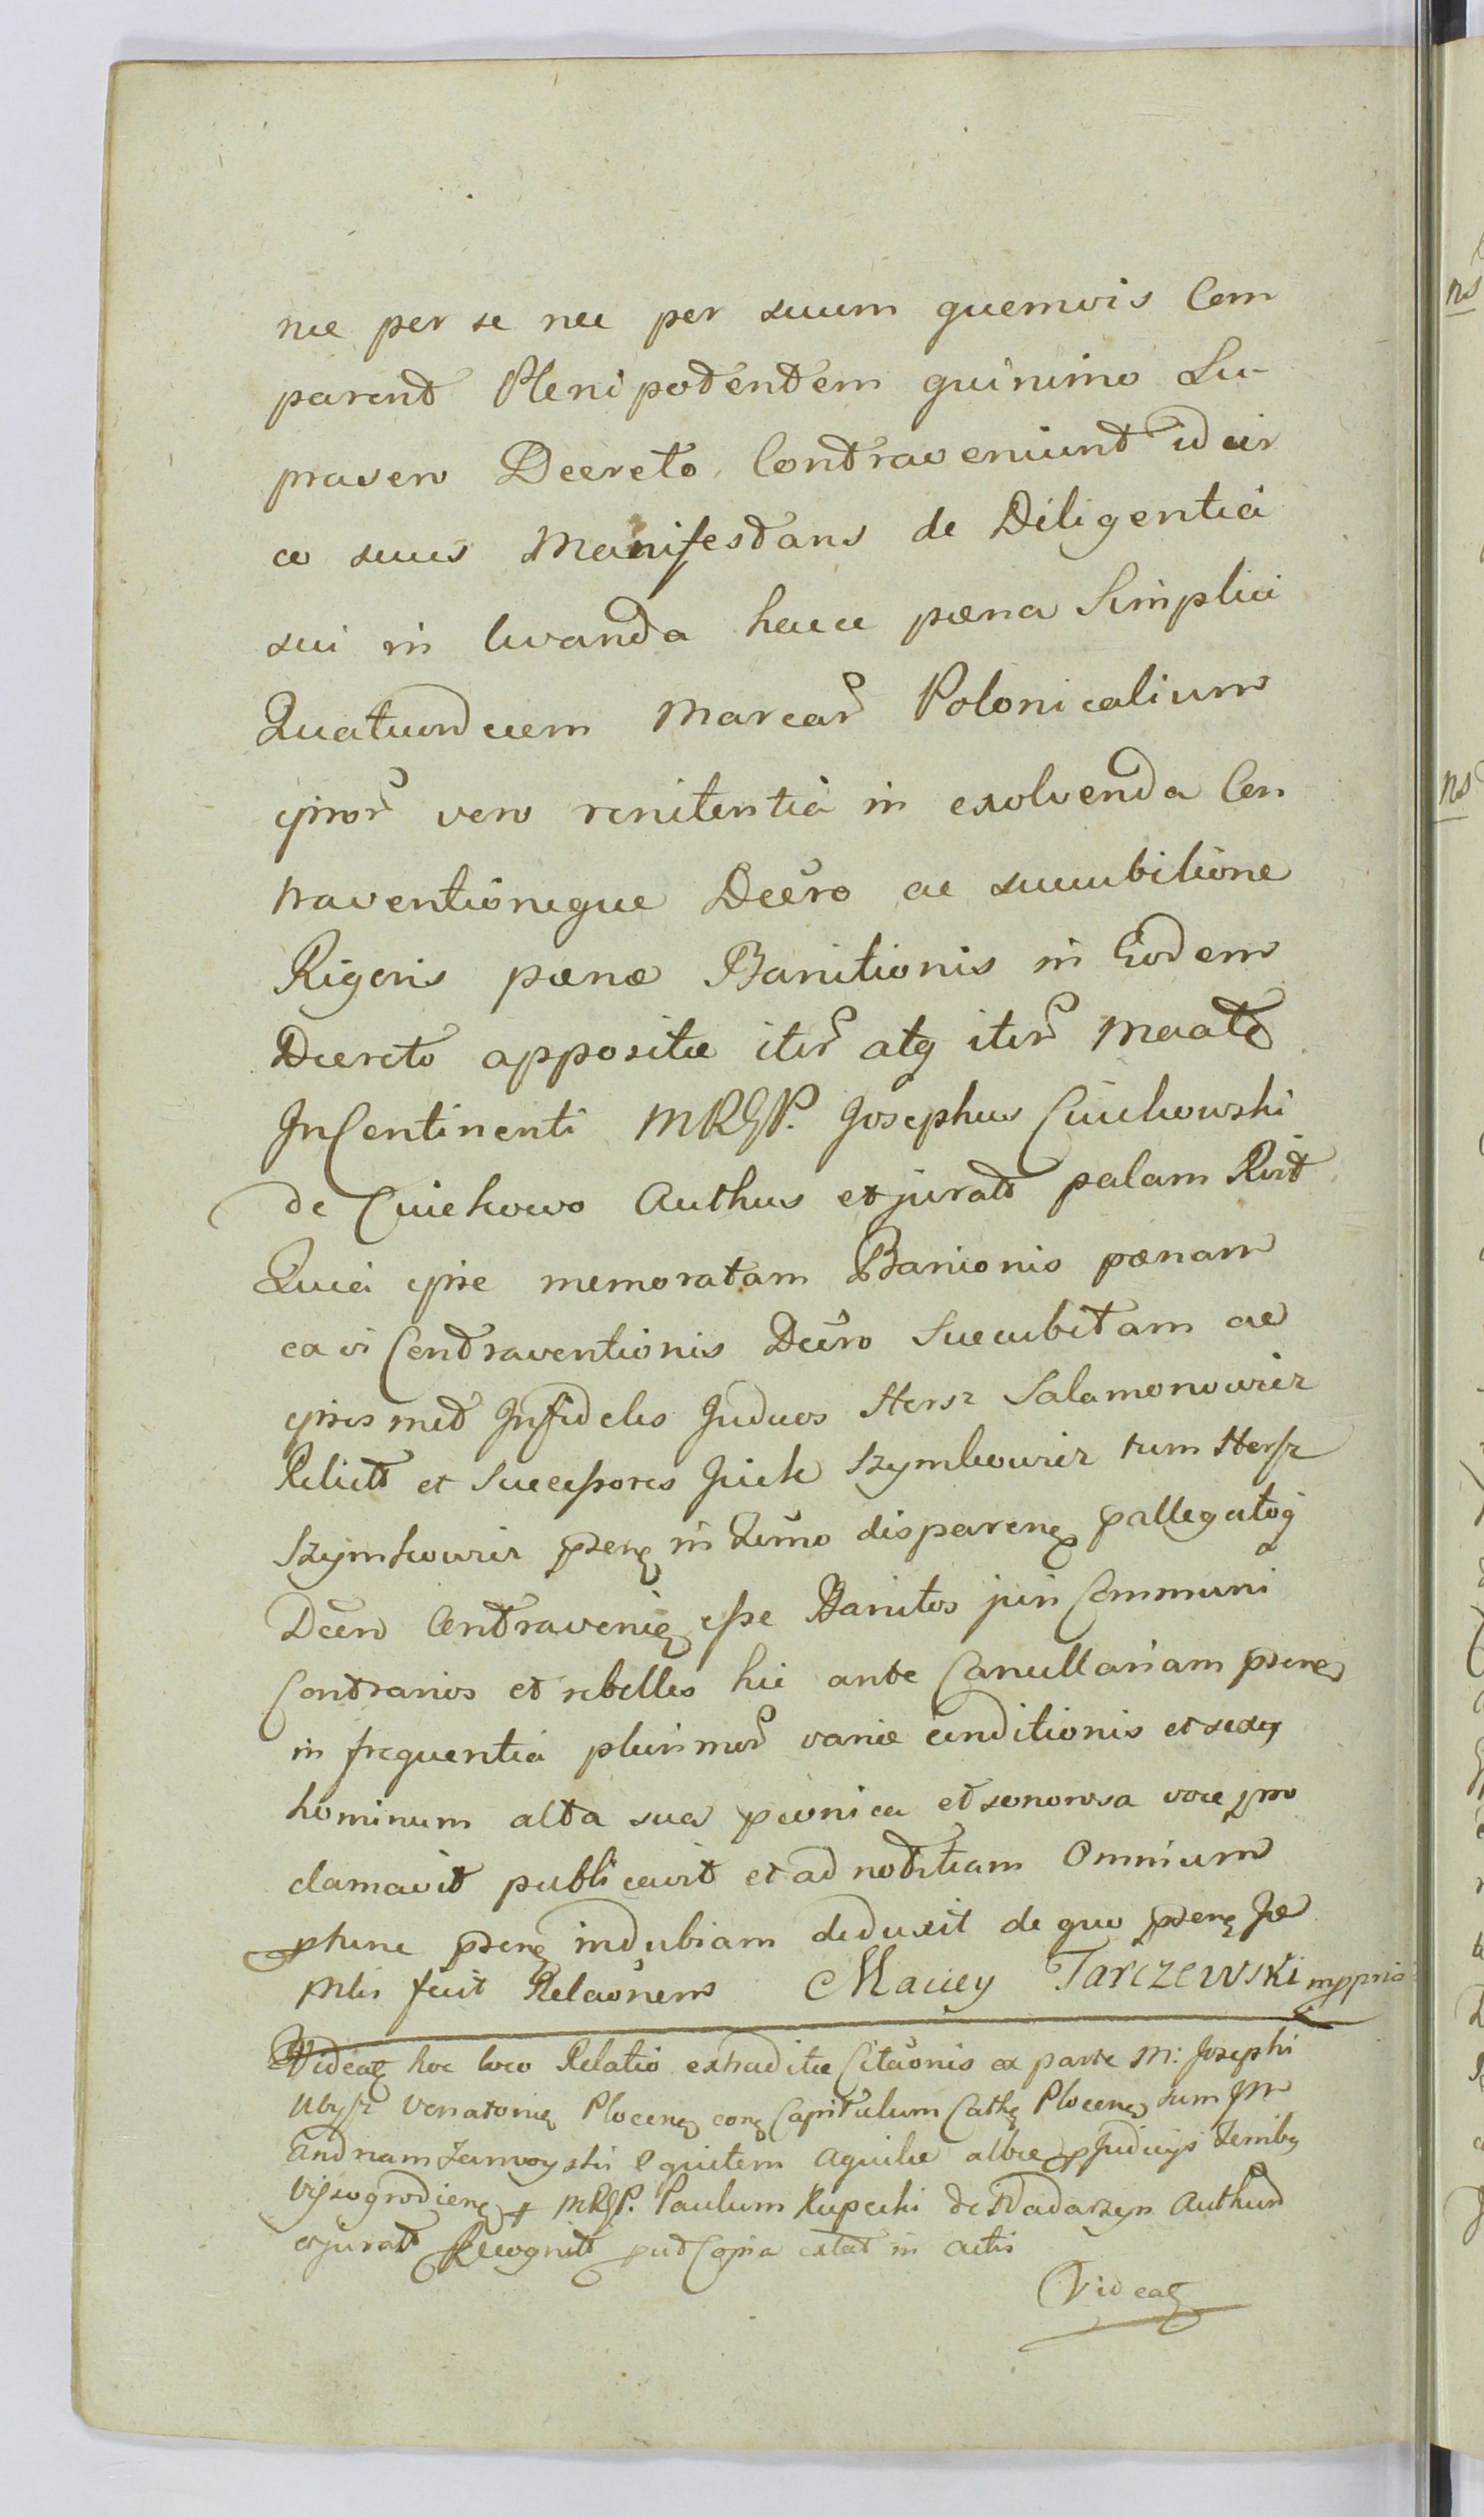 nec per se nec per suum quemvis Com
parent Plenipotentem quinimo Su-
pravero Decreto Contraveniunt idcir
co suus Manifestans de Diligentia
sui in luranda haec pœna Simplici
Quatuordecem Marcar Polonicalium
ipsor vero renitentia in exolvenda Con
traventioneque Decro ac succubitione
Rigoris pœnæ Banitionis in Eodem
Decreto appositæ iter atq iter
InContinenti MRGP. Josephus Ciuchowski
de Ciuchowo Authus et jurat palam
Quia ipse memoratam Banionis pœnam
ea vi Contraventionis Decro Succubitam ac
ipsosmet Infideles Judæos Hersz Salamonowicz
Relict et Successores Szymkowicz tum Hersz
Szymkowicz psens in dispareng pallegatoq
Decro Contravenie esse Banitos juri Communi
Contrarios et rebelles hic ante Cancellariam psene
in frequentia plurimor variæ conditionis et sexq
hominum alta sua et sonorosa voce pro
clamavit publicavit et ad notitiam Omnium
psene indubiam deduxit de quo psene
fecit Relaonem Maciey Tarczewski mppria
Videat hoc loco Relatio extraditæ Citaonis ex parte M: Josephi
Venatorie Plocene Capitulum Cathe Plocene tum
Andream Zamoyski Equitem Aquilæ albæ
Vyszogrodiene MRGP. Paulum Rupecki de Authum
et jurat Recognit put Copia extat in Actis
Videat